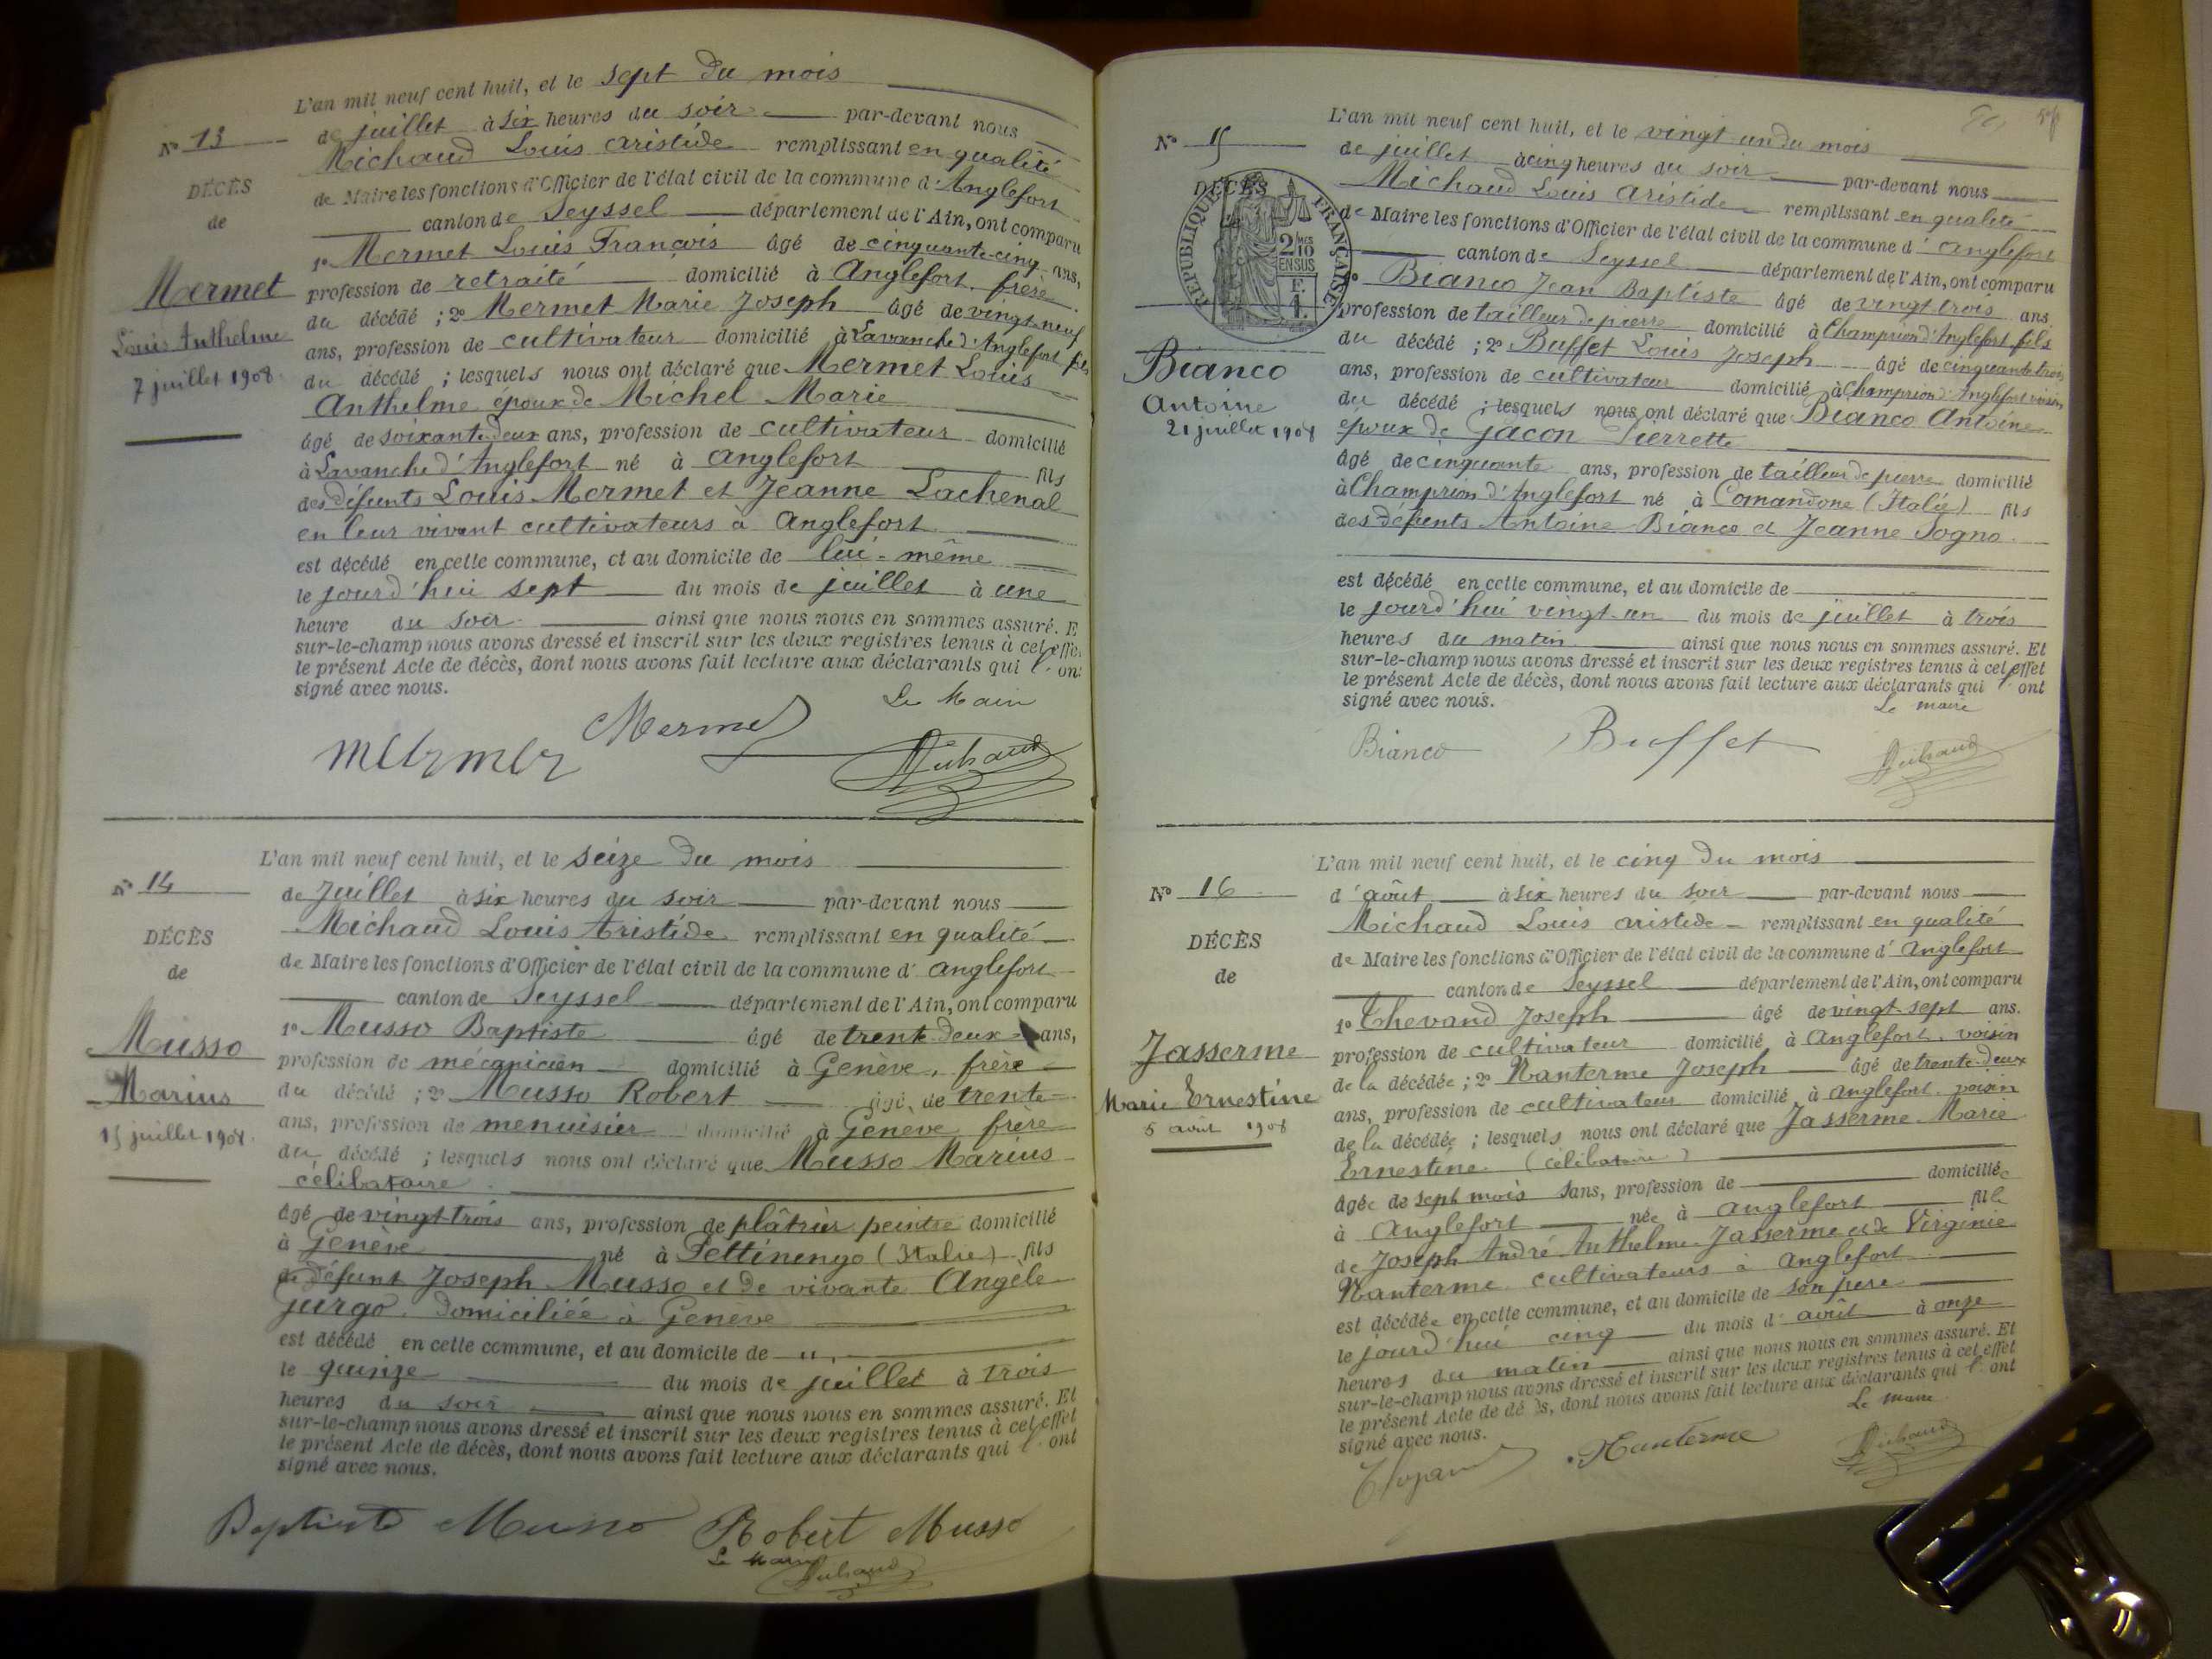 L'an mil neuf cent huit, et le sept du mois
N° 13
de juillet à six heures du soir par-devant nous
Michaud Louis Aristide remplissant en qualité
DÉCÈS
de Maire les fonctions d'Officier de l'état civil de la commune d'Anglefort
de
canton de Seyssel département de l'Ain, ont comparu
1° Mermet Louis François âgé de cinquante-cinq ans,
Mermet
profession de retraité domicilié à Anglefort, frère
Louis Anthelme
du décédé ; 2° Mermet Marie Joseph âgé de vingt-neuf
7 juillet 1908
ans, profession de cultivateur domicilié à Lavanche d'Anglefort fils
du décédé ; lesquels nous ont déclaré que Mermet Louis
Anthelme epoux de Michel Marie
âgé de soixante-deux ans, profession de cultivateur domicilié
à Lavanche d'Anglefort né à Anglefort fils
des défunts Louis Mermet et Jeanne Lachenal
en leur vivant cultivateurs à Anglefort
est décédé en cette commune, et au domicile de lui-même
le jourd'hui sept du mois de juillet à une
heure du soir ainsi que nous nous en sommes assuré. E
sur-le-champ nous avons dressé et inscrit sur les deux registres tenus à cet effet
le présent Acte de décès, dont nous avons fait lecture aux déclarants qui l' ont
signé avec nous.
Le Maire
mermet Mermet Michaud
L'an mil neuf cent huit, et le seize du mois
N° 14
de Juillet à six heures du soir par-devant nous
Michaud Louis Aristide remplissant en qualité
DÉCÈS
de Maire les fonctions d'Officier de l'état civil de la commune d'Anglefort
de
canton de Seyssel département de l'Ain, ont comparu
1° Musso Baptiste âgé de trente deux ans,
Musso
profession de mécanicien domicilié à Genève, frère
Marius
du décédé ; 2° Musso Robert âgé de trente
15 juillet 1908
ans, profession de menuisier domicilié à Genève frère
du décédé ; lesquels nous ont déclaré que Musso Marius
célibataire
âgé de vingt-trois ans, profession de plâtrier peintre domicilié
à Genève né à Pettinengo (Italie) fils
de défunt Joseph Musso et de vivante Angèle
Jurgo domiciliée à Genève
est décédé en cette commune, et au domicile de "
le quinze du mois de juillet à trois
heures du soir ainsi que nous nous en sommes assuré. Et
sur-le-champ nous avons dressé et inscrit sur les deux registres tenus à cet effet
le présent Acte de décès, dont nous avons fait lecture aux déclarants qui l' ont
signé avec nous.
Baptiste Musso Robert Musso
Le Maire
Michaud
L'an mil neuf cent huit, et le vingt-un du mois
N° 15
de juillet à cinq heures du soir par-devant nous
Michaud Louis Aristide remplissant en qualité
DÉCÈS
RÉPUBLIQUE FRANÇAISE
2 MES 10 EN SUS
F. 1.
de Maire les fonctions d'Officier de l'état civil de la commune d'Anglefort
canton de Seyssel département de l'Ain, ont comparu
1° Bianco Jean Baptiste âgé de vingt trois ans
profession de tailleur de pierre domicilié à Champrion d'Anglefort fils
Bianco
du décédé ; 2° Buffet Louis Joseph âgé de cinquante-trois
Antoine
ans, profession de cultivateur domicilié à Champrion d'Anglefort voisin
21 juillet 1908
du décédé ; lesquels nous ont déclaré que Bianco Antoine
époux de Gacon Pierrette
âgé de cinquante ans, profession de tailleur de pierre domicilié
à Champrion d'Anglefort né à Comandone (Italie) fils
des défunts Antoine Bianco et Jeanne Sogno
est décédé en cette commune, et au domicile de
le jourd'hui vingt-un du mois de juillet à trois
heures du matin ainsi que nous nous en sommes assuré. Et
sur-le-champ nous avons dressé et inscrit sur les deux registres tenus à cet effet
le présent Acte de décès, dont nous avons fait lecture aux déclarants qui l' ont
signé avec nous.
Le maire
Bianco Buffet Michaud
L'an mil neuf cent huit, et le cinq du mois
N° 16
d'août à six heures du soir par-devant nous
Michaud Louis Aristide remplissant en qualité
DÉCÈS
de Maire les fonctions d'Officier de l'état civil de la commune d'Anglefort
de
canton de Seyssel département de l'Ain, ont comparu
1° Thevand Joseph âgé de vingt-sept ans.
Jasserme
profession de cultivateur domicilié à Anglefort, voisin
Marie Ernestine
de la décédée ; 2° Nanterme Joseph âgé de trente-deux
5 août 1908
ans, profession de cultivateur domicilié à Anglefort voisin
de la décédée ; lesquels nous ont déclaré que Jasserme Marie
Ernestine (célibataire)
âgée de sept mois sans, profession de domiciliée
à Anglefort née à Anglefort fille
de Joseph André Anthelme Jasserme et de Virginie
Nanterme cultivateurs à Anglefort
est décédée en cette commune, et au domicile de son père
le jourd'hui cinq du mois d'août à onze
heures du matin ainsi que nous nous en sommes assuré. Et
sur-le-champ nous avons dressé et inscrit sur les deux registres tenus à cet effet
le présent Acte de décès, dont nous avons fait lecture aux déclarants qui l' ont
signé avec nous.
Le maire
Nanterme Michaud